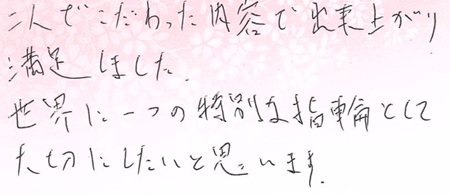 二人でこだわった内容で出来上がり
満足しました.
世界に一つの特別な指輪として
大切にしたいと思います.